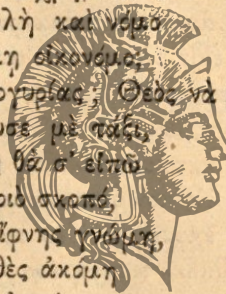 λὴ καὶ νόμο
η οἰκονόμο;
ργυρίας, Θεὸς νὰ
σε μὲ τάξι,
θὰ σ' εἰπῶ
ριὸ σκρπό,
ἴφνης γνώμη,
θὲς ἀκόμη